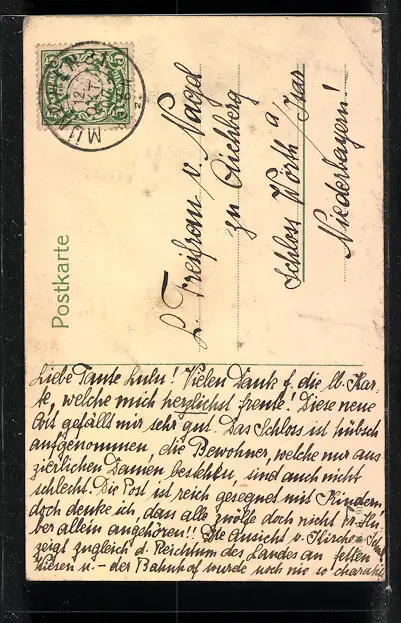 Postkarte
MÜNCHEN
12
L. Freifrau v. Nagel
zu Aichberg
a
Schloss Wörth /Isar
Niederbayern!
Liebe Tante Lulu! Vielen Dank f. die lb. Kar-
te, welche mich herzlichst freute! Diese neue
Art gefällt mir sehr gut. Das Schloss ist hübsch
aufgenommen, die Bewohner, welche nur aus
zierlichen Damen bestehen, sind auch nicht
schlecht. Die Post ist reich gesegnet mit Kindern,
doch denke ich, dass alle zwölfe doch nicht Fr. Hu-
ber allein angehören!! Die Ansicht v. Kirche u.
zeigt zugleich d. Reichtum des Landes an fetten
Wiesen u. – der Bahnhof wurde noch nie so charakt